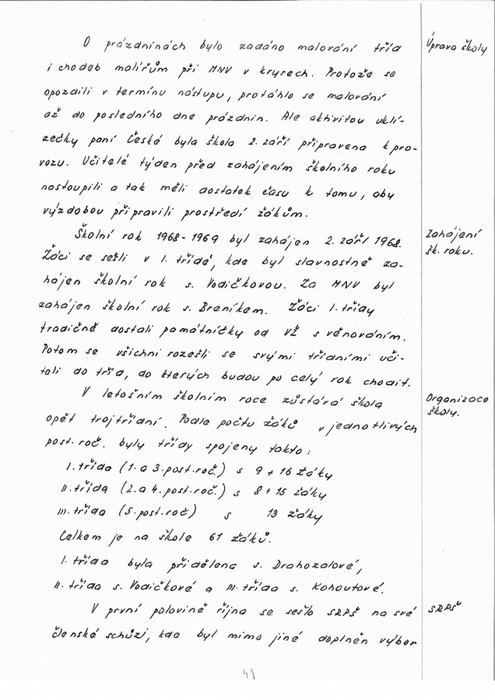 O prázdninách bylo zadáno malování tříd
Úprava školy
i chodeb malířům při MNV v Kryrech. Protože se
opozdili v termínu nástupu, protáhlo se malování
až do posledního dne prázdnin. Ale aktivitou uklí-
zečky paní Česká byla škola 2. září připravena k pro-
vozu. Učitelé týden před zahájením školního roku
nastoupili a tak měli dostatek času k tomu, aby
výzdobou připravili prostředí žákům.
Školní rok 1968-1969 byl zahájen 2. září 1968.
Zahájení
šk. roku.
Žáci se sešli v I. třídě, kde byl slavnostně za-
hájen školní rok s. Vodičkovou. Za MNV byl
zahájen školní rok s. Breníkem. Žáci I. třídy
tradičně dostali památníčky od VŽ s věnováním.
Potom se všichni rozešli se svými třídními uči-
teli do tříd, do kterých budou po celý rok chodit.
V letošním školním roce zůstává škola
Organizace
školy.
opět trojtřídní. Podle počtu žáků v jednotlivých
post. roč. byly třídy spojeny takto:
I. třída (1. a 3. post. roč.) s 9 + 16 žáky
II. třída (2. a 4. post. roč.) s 8 + 15 žáky
III. třída (5. post. roč) s 13 žáky
Celkem je na škole 61 žáků.
I. třída byla přidělena s. Drahozalové,
II. třída s. Vodičkové a III. třída s. Kohoutové.
V první polovině října se sešlo SRPŠ na své
SRPŠ
členské schůzi, kde byl mimo jiné doplněn výbor
41